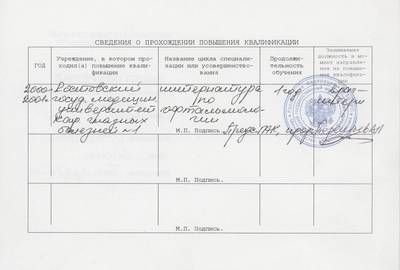 СВЕДЕНИЯ О ПРОХОЖДЕНИИ ПОВЫШЕНИЯ КВАЛИФИКАЦИИ
ГОД
Учреждение, в котором про-
ходил(а) повышение квали-
фикации
Название цикла специали-
зации или усовершенство-
вания
Продолжи-
тельность
обучения
Занимаемая
должность в мо-
мент направле-
ния на повыше-
ние квалифика-
ции
2000-
2001г
Ростовский
госуд. медицин.
университет
каф. глазных
болезней №1
интернатура
по
офтальмоло-
гии
1 год
врач-
интерн
М.П. Подпись.
М.П. Подпись.
М.П. Подпись.